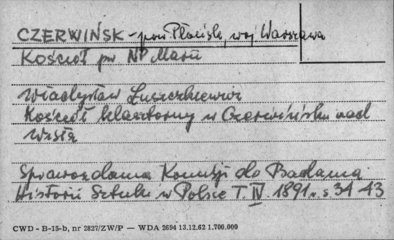 CZERWIŃSK - pow Płońsk, woj Warszawa
Kościół pw NP Marii
Władysław Łuszczkiewicz
Kościół klasztorny w Czerwińsku nad
Wisłą
Sprawozdania Komisji do Badania
Historii Sztuki w Polsce T. IV 1891 r. s 31 43
CWD - B-15-b, nr 2827/ZW/P — WDA 2694 13.12.62 1.700.000